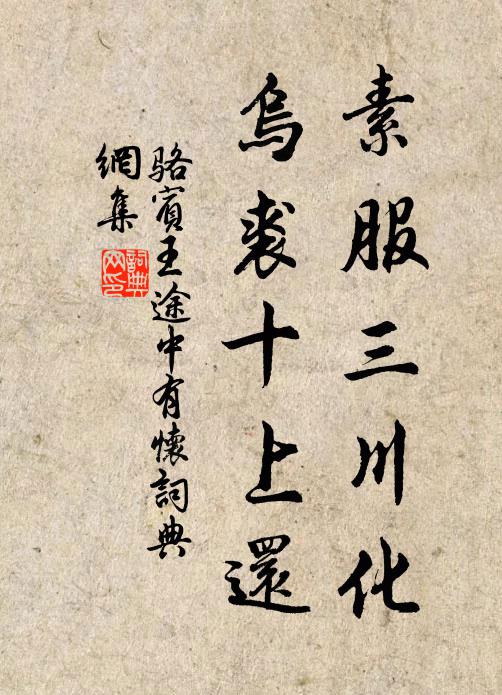 素服三川化
烏裘十上還
駱賓王途中有懷詞典
網集
詞典
网印